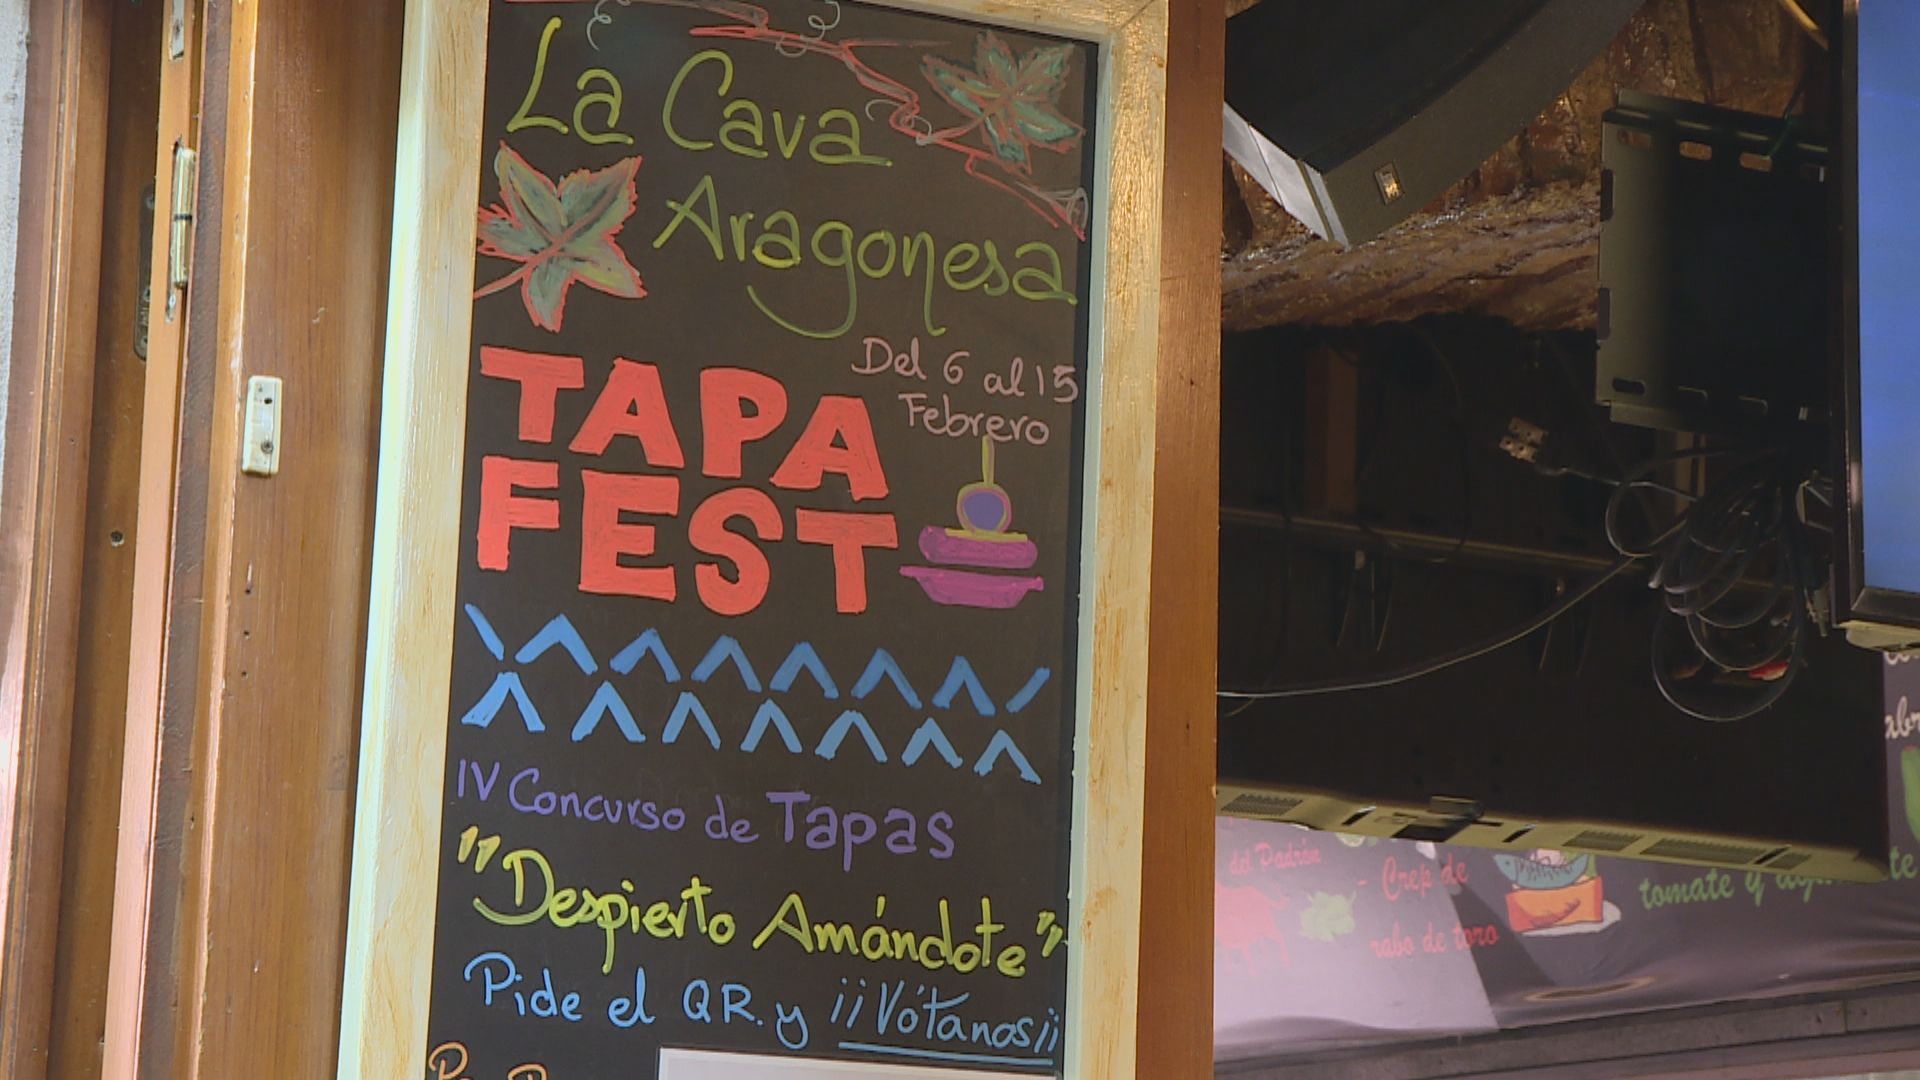 La Cava
Aragonesa
Del 6 al 15
Febrero
TAPA
FEST
IV Concurso de Tapas
"Despierto Amándote"
Pide el QR. y ¡¡Vótanos¡¡
del Padrón
- Crep de
rabo de toro
tomate y